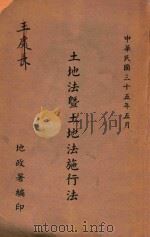 中華民國三十五年五月
土地法暨土地法施行法
地政署編印